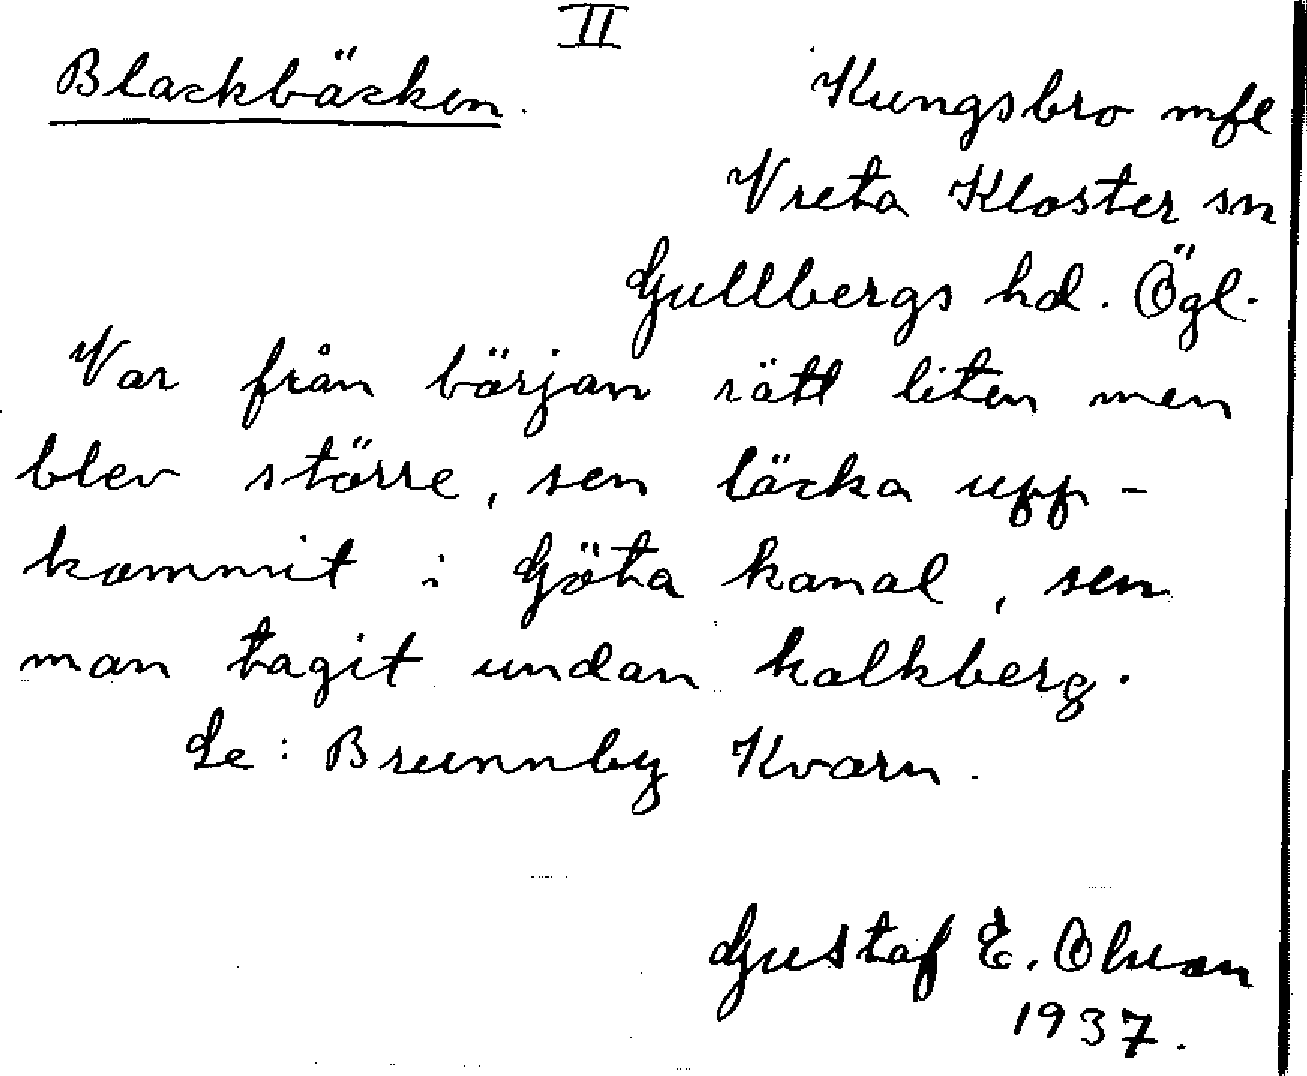 II
Blackbäcken.
Kungsbro mfl
Vreta Kloster sn
Gullbergs hd. Ögl.
Var från början rätt liten men
blev större, sen läcka upp-
kommit i Göta kanal, sen
man tagit undan kalkberg.
Se: Brunnby Kvarn.
Gustaf E. Olsson
1937.